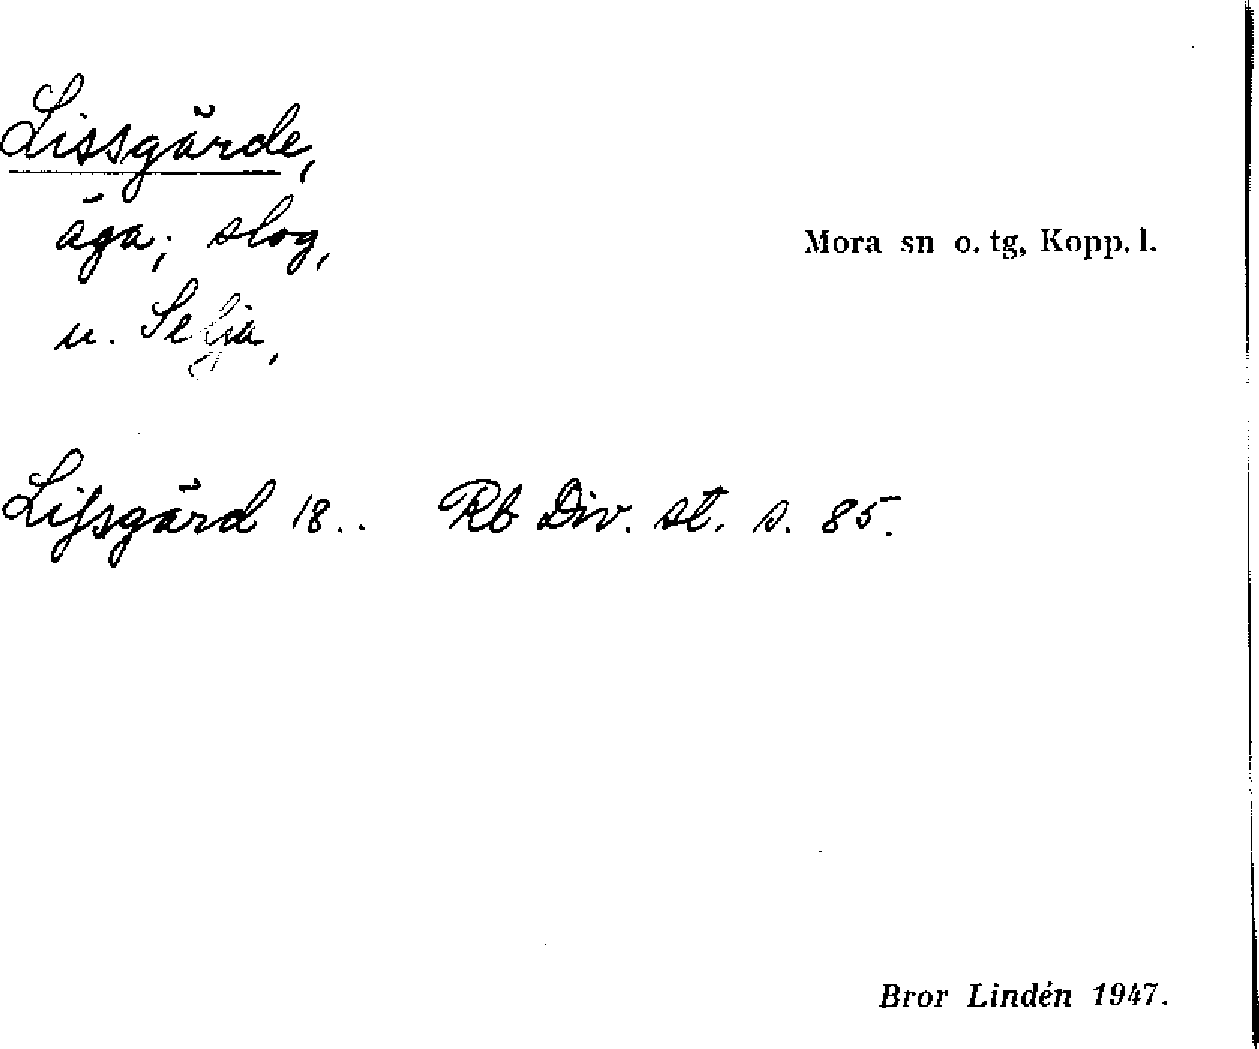 Lissgärde,
äga; slog,
Mora sn o. tg, Kopp. l.
u. Selja,
Lifsgärd 18.. Rb Div. st. s. 85.
Bror Lindén 1947.